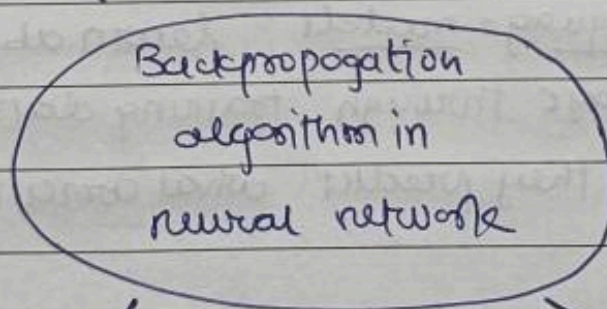 Backpropogation
algorithm in
neural network